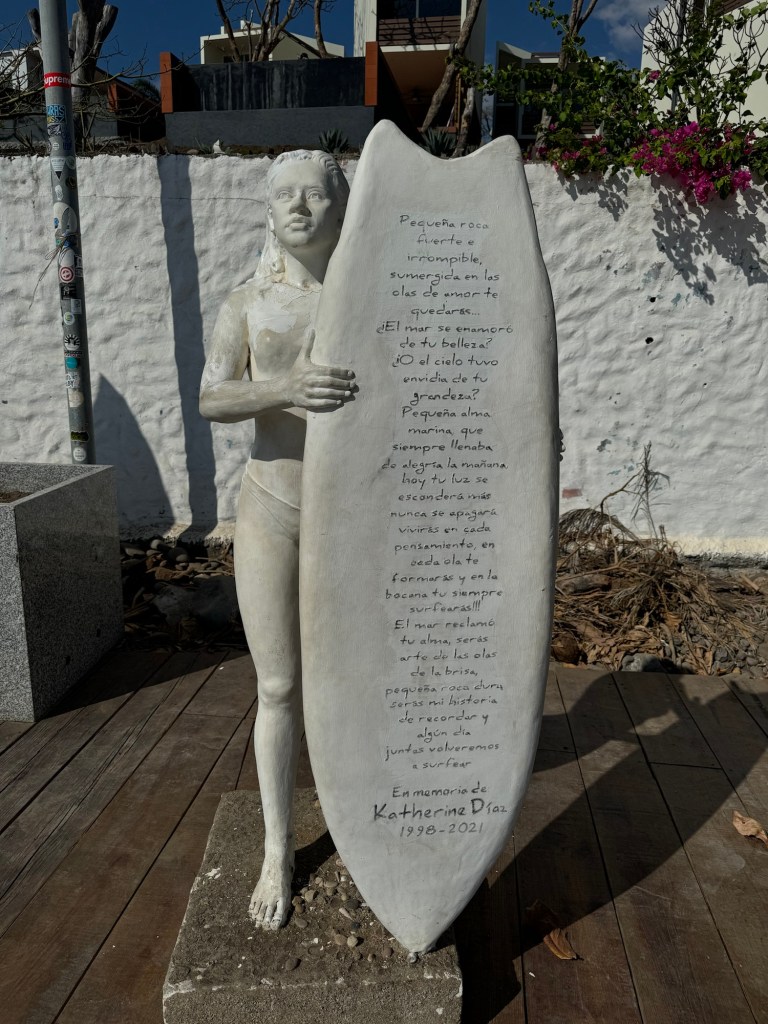 Supreme
Pequeña roca
fuerte e
irrompible,
sumergida en las
olas de amor te
quedarás...
¿El mar se enamoró
de tu belleza?
¿O el cielo tuvo
envidia de tu
grandeza?
Pequeña alma
marina, que
siempre llenaba
de alegría la mañana
hoy tu luz se
esconderá más
nunca se apagará
vivirás en cada
pensamiento, en
cada ola te
formarás y en la
bocana tu siempre
surfearás!!!
El mar reclamó
tu alma, serás
arte de las olas
de la brisa,
pequeña roca dura
serás mi historia
de recordar y
algún día
juntas volveremos
a surfear
En memoria de
Katherine Díaz
1998-2021